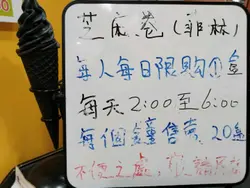 芝麻卷(菲林)
每人每日限購①盒
每天2:00至6:00
每個鐘售賣20盒
不便之處,敬請見諒